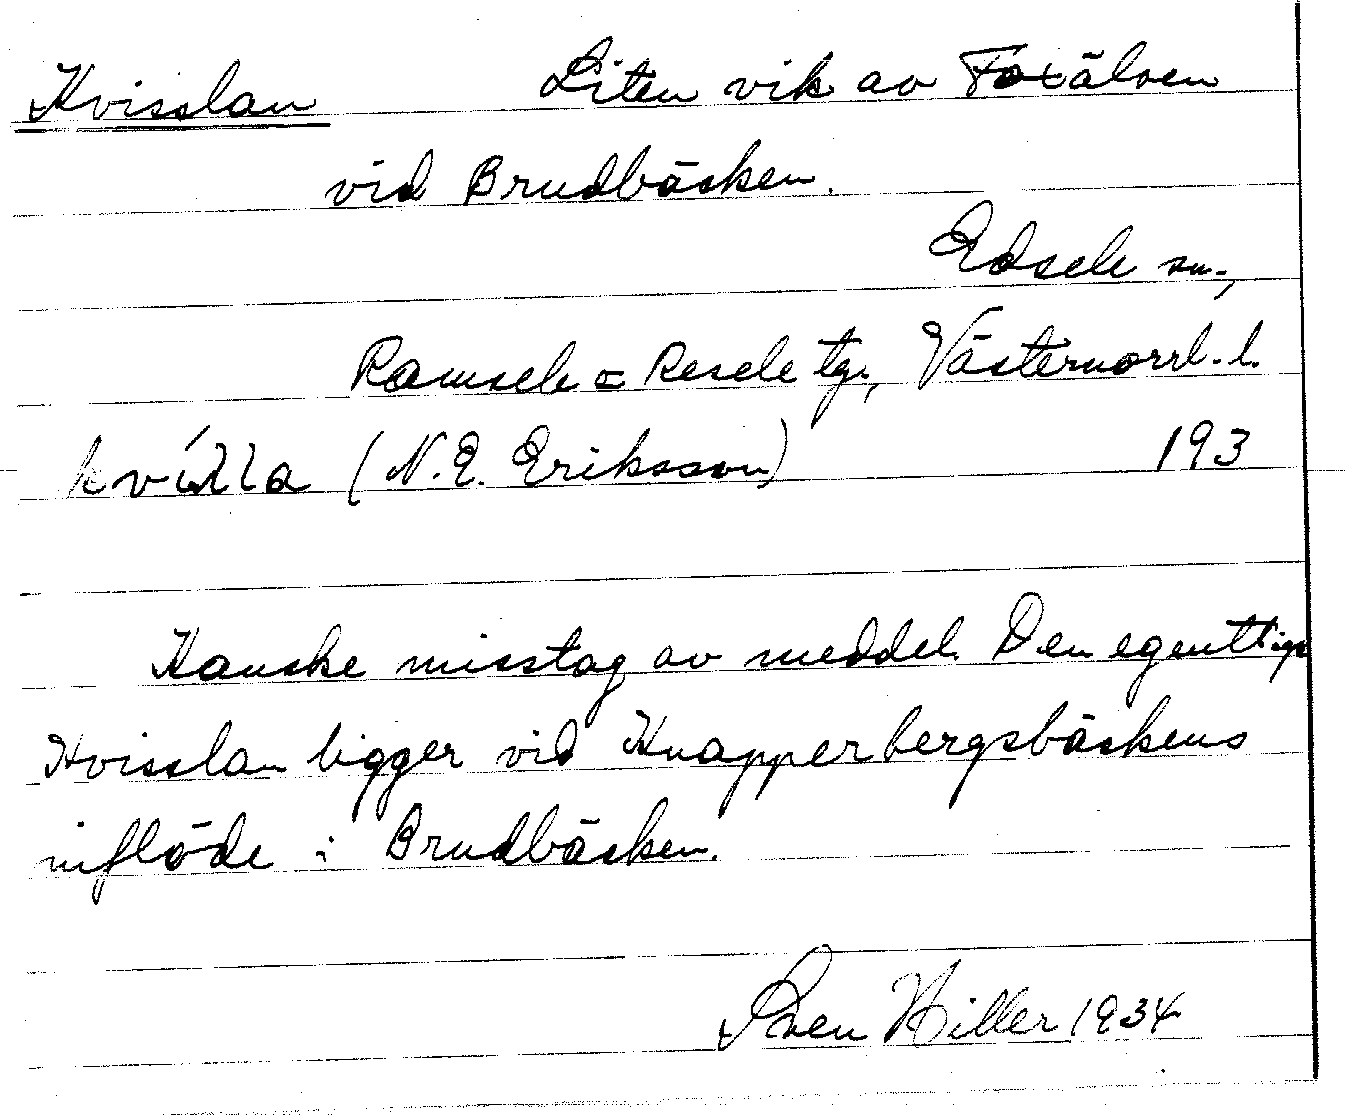 Kvisslan Liten vik av Faxälven
vid Brudbäcken.
Edsele sn.,
Ramsele o Resele tg., Västernorrl. l.
(N. E. Eriksson) 193
Kanske misstag av meddel. Den egentliga
Kvisslan ligger vid Knapperbergsbäckens
inflöde i Brudbäcken.
Sven Hiller 1934